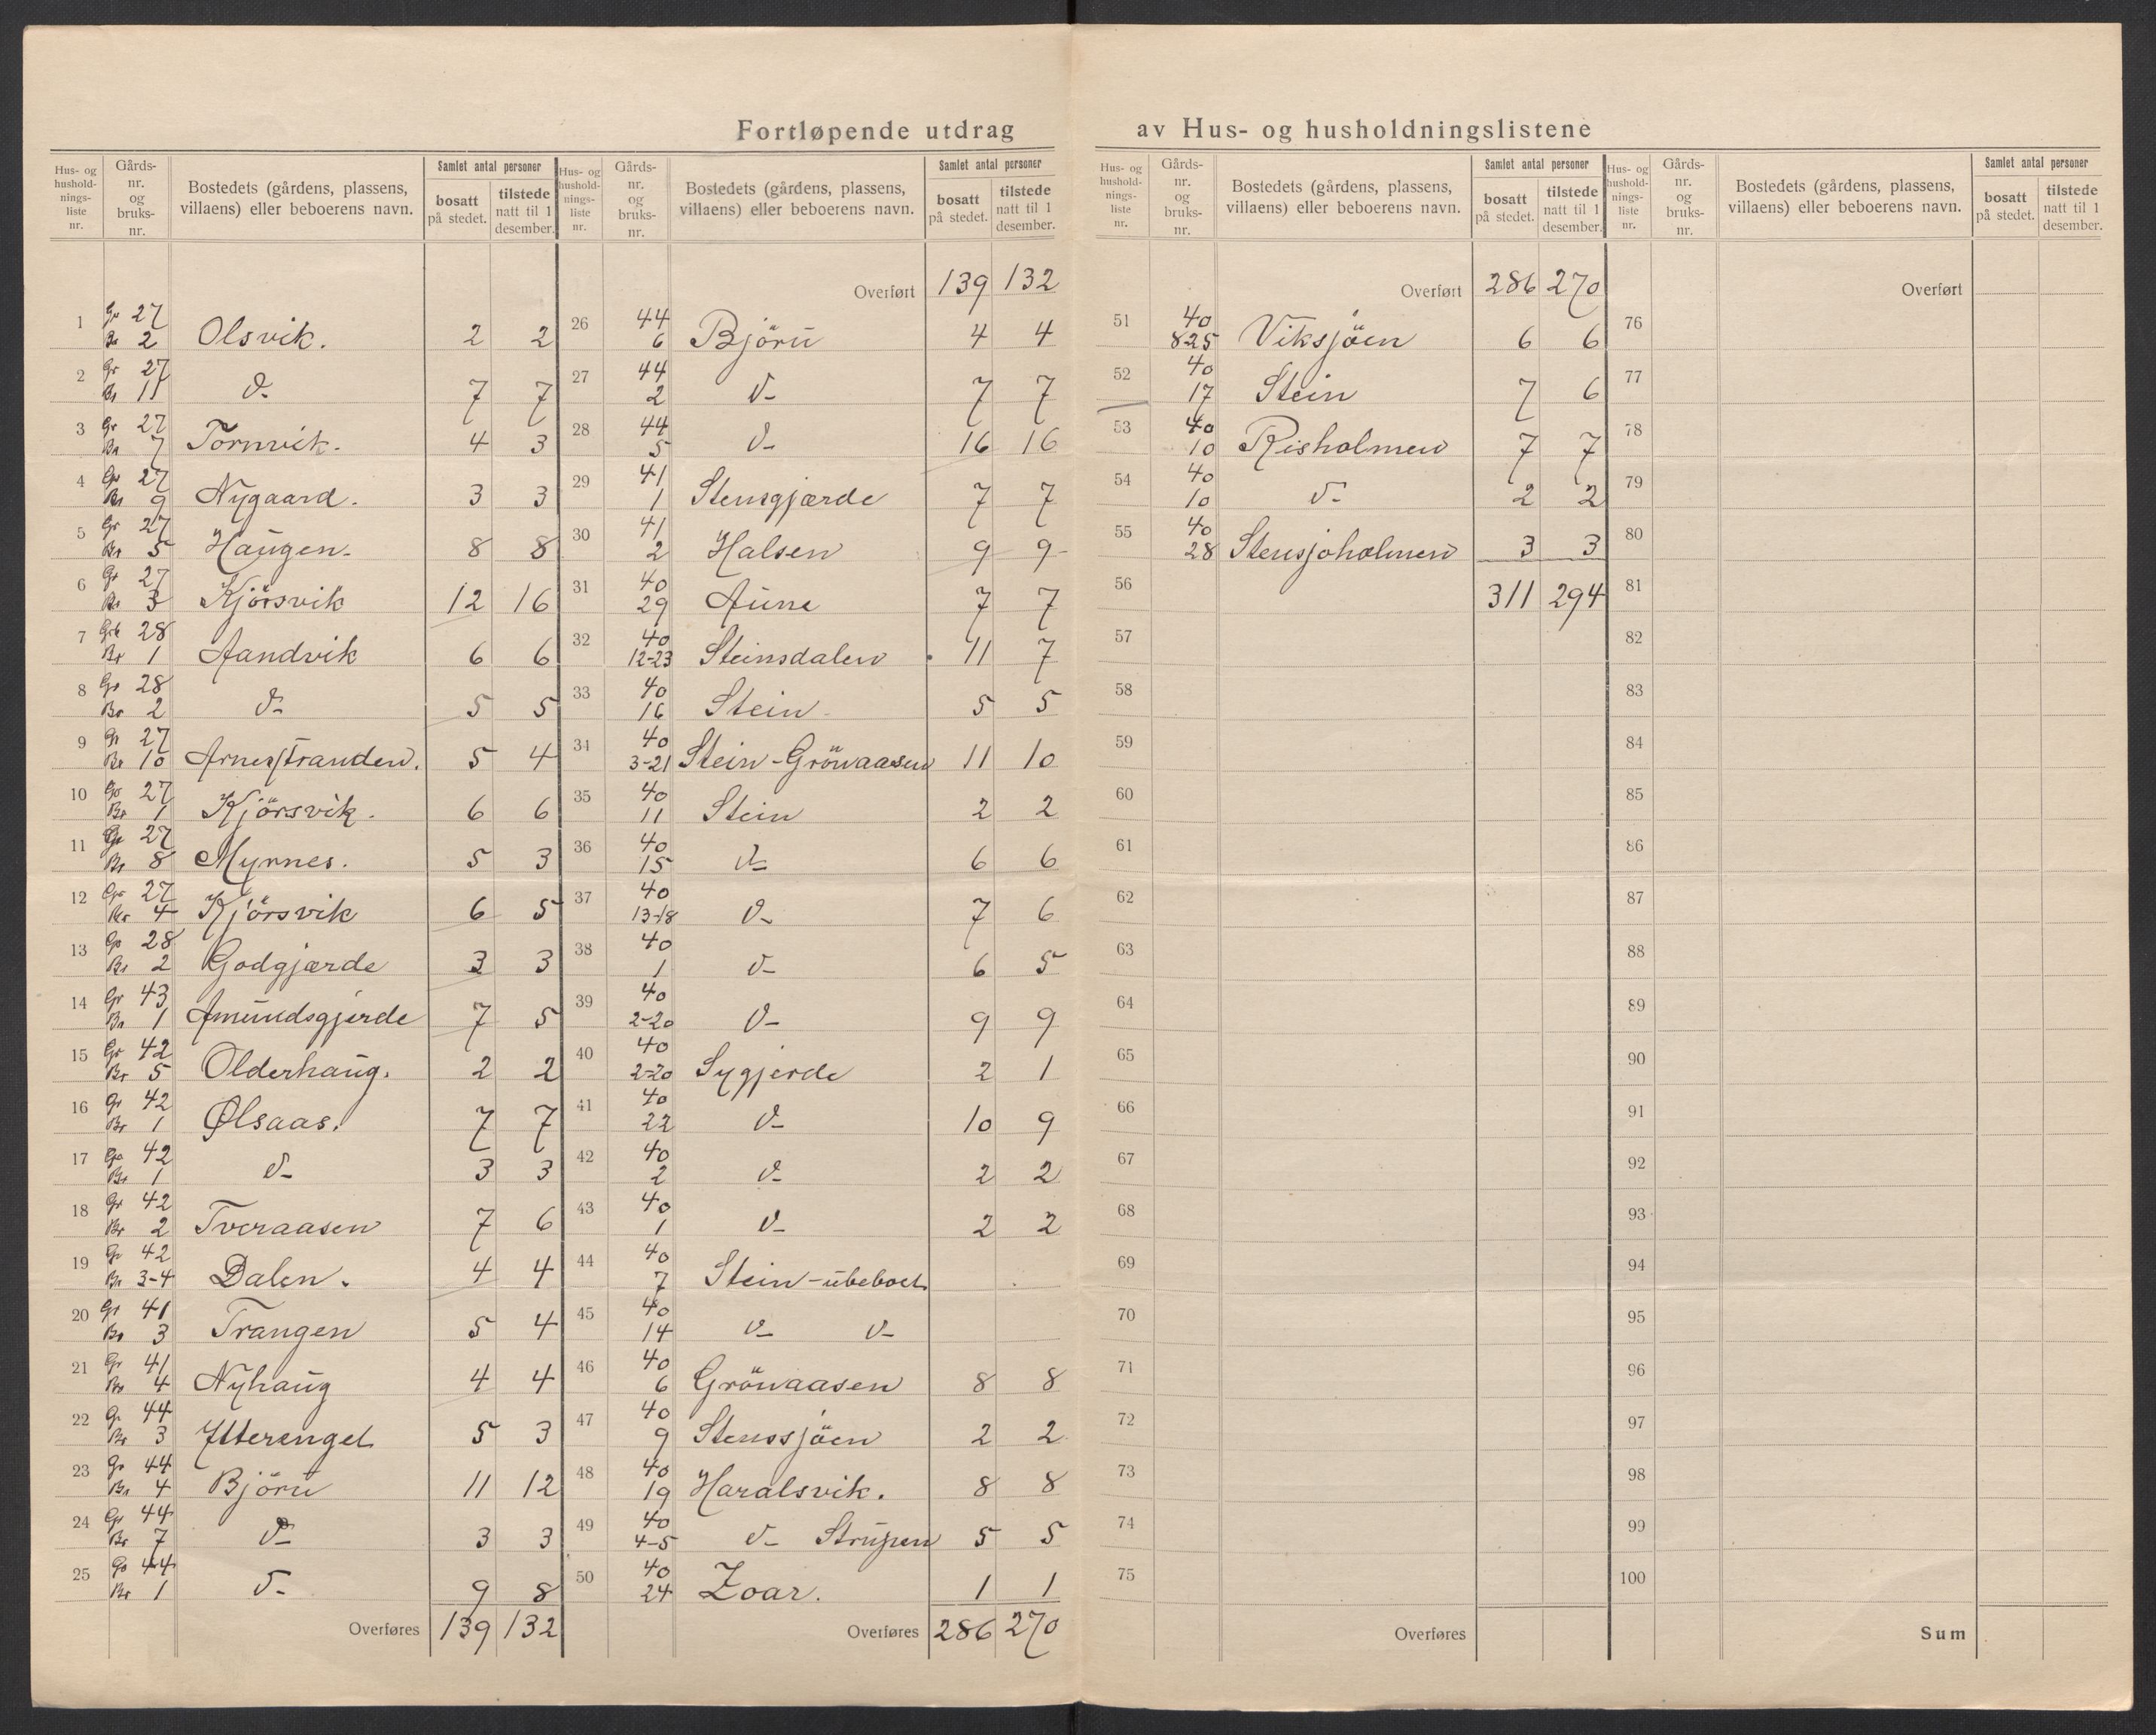 Fortløpende utdrag av Hus- og husholdningslistene
Hus- og hushold-nings-liste nr. | Gårds-nr. og bruks-nr. | Bostedets (gårdens, plassens, villaens) eller beboerens navn. | Samlet antal personer | bosatt på stedet. | tilstede natt til 1 desember.
1 Gr 27 Br 2 Olsvik. 2 2
2 Gr 27 Br 11 d- 7 7
3 Gr 27 Br 7 Tornvik. 4 3
4 Gr 27 Br 9 Nygaard. 3 3
5 Gr 27 Br 5 Haugen. 8 8
6 Gr 27 Br 3 Kjörsvik 12 16
7 Gr 28 Br 1 Aandvik 6 6
8 Gr 28 Br 2 d- 5 5
9 Gr 27 Br 10 Arnesstranden. 5 4
10 Gr 27 Br 1 Kjörsvik. 6 6
11 Gr 27 Br 8 Myrnes. 5 3
12 Gr 27 Br 4 Kjörsvik 6 5
13 Gr 28 Br 2 Godgjærde 3 3
14 Gr 43 Br 1 Amundsgjerde 7 5
15 Gr 42 Br 5 Olderhaug. 2 2
16 Gr 42 Br 1 Ølsaas. 7 7
17 Gr 42 Br 1 d- 3 3
18 Gr 42 Br 2 Tveraasen 7 6
19 Gr 42 Br 3-4 Dalen. 4 4
20 Gr 41 Br 3 Trangen 5 4
21 Gr 41 Br 4 Nyhaug 4 4
22 Gr 44 Br 3 Ytterenget 5 3
23 Gr 44 Br 4 Björn 11 12
24 Gr 44 Br 7 d- 3 3
25 Gr 44 Br 1 d- 9 8
Overføres 139 132
Hus- og hushold-nings-liste nr. | Gårds-nr. og bruks-nr. | Bostedets (gårdens, plassens, villaens) eller beboerens navn. | Samlet antal personer | bosatt på stedet. | tilstede natt til 1 desember.
Overført 139 132
26 44 6 Björn 4 4
27 44 2 d- 7 7
28 44 5 d- 16 16
29 41 1 Stensgjærde 7 7
30 41 2 Halsen 9 9
31 40 29 Aune 7 7
32 40 12-23 Steinsdalen 11 7
33 40 16 Stein 5 5
34 40 3-21 Stein-Grönaasen 11 10
35 40 11 Stein 2 2
36 40 15 d- 6 6
37 40 13-18 d- 7 6
38 40 1 d- 6 5
39 40 2-20 d- 9 9
40 40 2-20 Sygjerde 2 1
41 40 22 d- 10 9
42 40 2 d- 2 2
43 40 1 d- 2 2
44 40 7 Stein-ubeboet
45 40 14 d- d-
46 40 6 Grönaasen 8 8
47 40 9 Stenssjöen 2 2
48 40 19 Haralsvik. 8 8
49 40 4-5 d- Strupen 5 5
50 40 24 Zoar. 1 1
Overføres 286 270
Hus- og hushold-nings-liste nr. | Gårds-nr. og bruks-nr. | Bostedets (gårdens, plassens, villaens) eller beboerens navn. | Samlet antal personer | bosatt på stedet. | tilstede natt til 1 desember.
Overført 286 270
51 40 825 Viksjöen 6 6
52 40 17 Stein 7 6
53 40 10 Risholmen 7 7
54 40 10 d- 2 2
55 40 28 Stensjoholmen 3 3
56 311 294
57
58
59
60
61
62
63
64
65
66
67
68
69
70
71
72
73
74
75
Overføres
Hus- og hushold-nings-liste nr. | Gårds-nr. og bruks-nr. | Bostedets (gårdens, plassens, villaens) eller beboerens navn. | Samlet antal personer | bosatt på stedet. | tilstede natt til 1 desember.
Overført
76
77
78
79
80
81
82
83
84
85
86
87
88
89
90
91
92
93
94
95
96
97
98
99
100
Sum